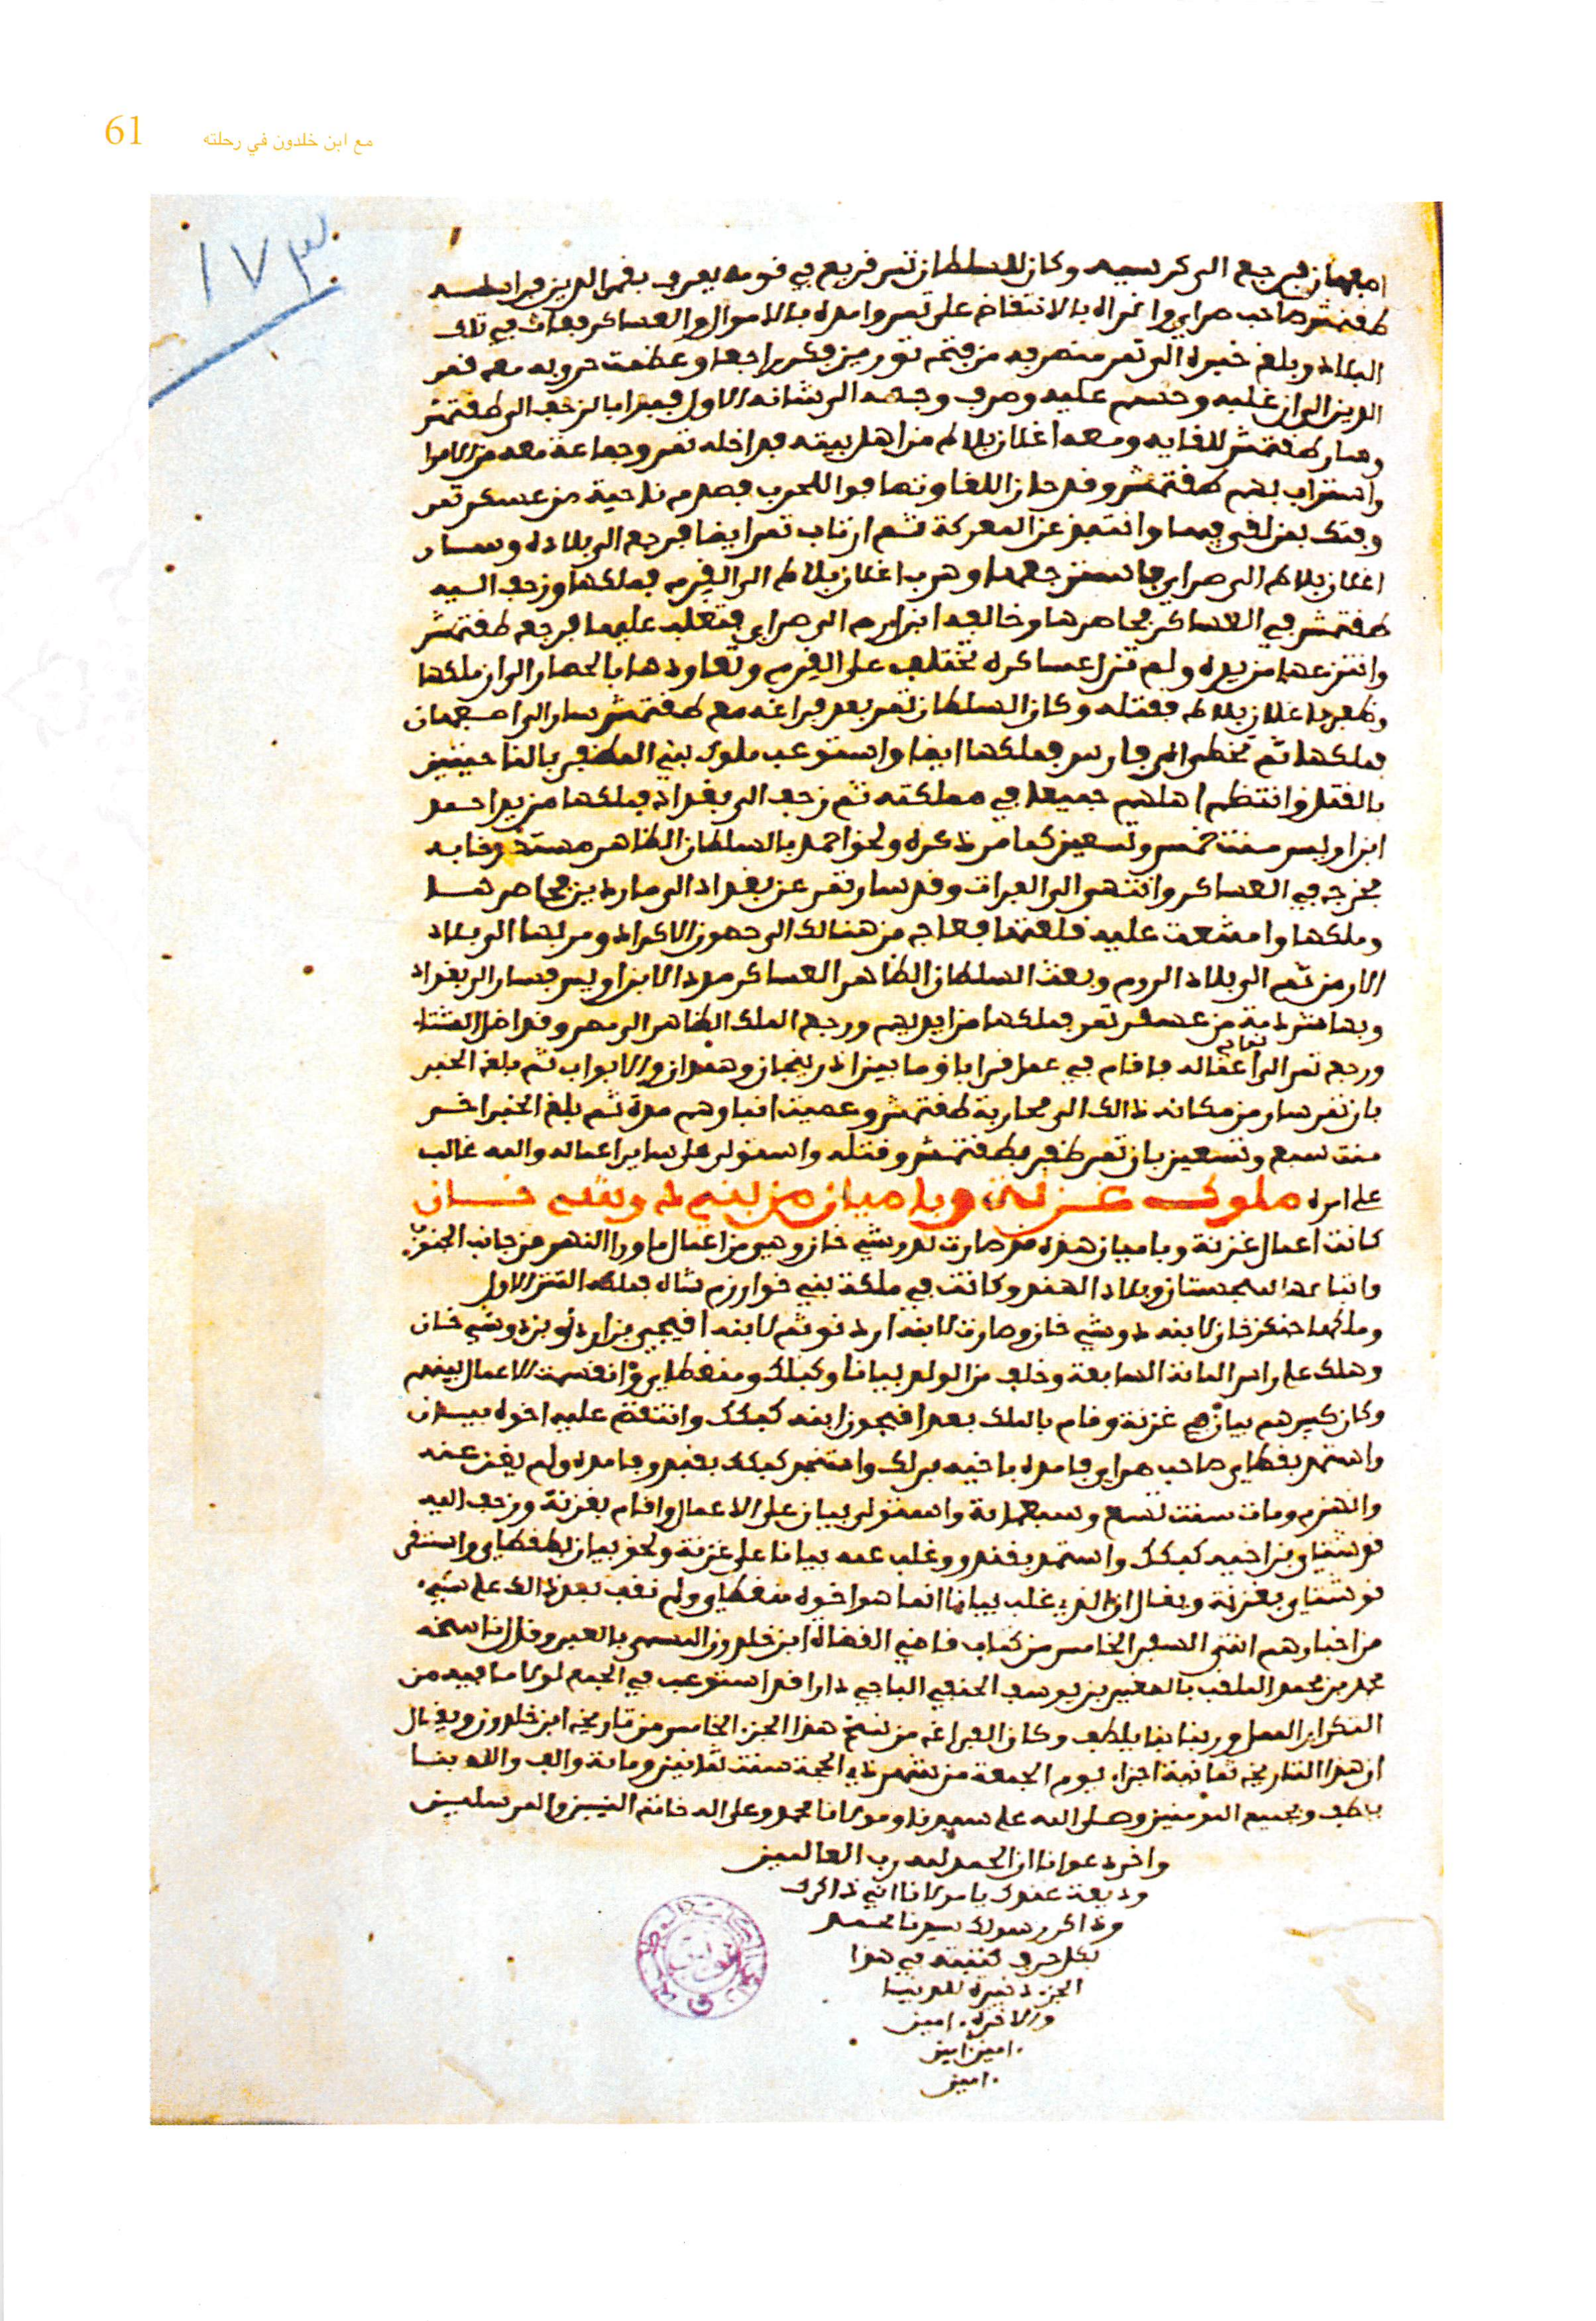 61
مع ابن خلدون في رحلته
١٧٣
اصبهان فيرجع الى كرسيه وكان للسلطان تمر قريع في قومه يعرف بقمر الدين فراسله
طقتمش صاحب صراي واغراه بالانتقاض على تمر وامده بالاموال والعساكر فعاث في تلك
البلاد وبلغ خبره الى تمر منصرفه من فتح توريز فكر راجعا وعظمت حروبه مع قمر
الدين الى ان غلبه وحسم عليه وصرف وجهه الى شانه الاول فبدا بالزحف الى طقتمش
وسار طقتمش للقايه ومعه اغلان بلاط من اهل بيته فداخله تمر وجماعة معه من الامرا
واستراب بهم طقتمش وقد حان اللقا وتصافوا للحرب فصدم ناحية من عسكر تمر
وفتك بمن لقي فيها وانتبذ عن المعركة ثم ارتاب تمر ايضا فرجع الى بلاده وسار
اغلان بلاط الى صراي فاسترجعها وهرب اغلان بلاط الى القرم فملكها وزحف اليه
طقتمش في العساكر فحاصرها وخالفه ابن ارم الى صراي فتغلب عليها فرجع طقتمش
وانتزعها من يده ولم تزل عساكره تختلف على القرم وتعاودها بالحصار الى ان ملكها
وظفر باغلان بلاط فقتله وكان السلطان تمر بعد فراغه مع طقتمش سار الى اصبهان
فملكها ثم تخطى الى فارس فملكها ايضا واستوعب ملوك بني المظفر بالناحيتين
بالقتل وانتظم اهلهم جميعا في مملكته ثم زحف الى بغداد فملكها من يد احمد
ابن اويس سنت خمس وتسعين كما مر ذكره ولحق احمد بالسلطان الظاهر
فخرج في العساكر وانتهى الى الفرات وقد سار تمر عن بغداد الى ماردين فحاصرها
وملكها وامتنعت عليه قلعتها فعاج من هنالك الى حصون الاكراد ومر بها الى بلاد
الارمن ثم الى بلاد الروم وبعث السلطان الظاهر العساكر مددا لابن اويس فسار الى بغداد
وبها شرذمة من عسكر تمر فملكها من ايديهم ورجع الملك الظاهر الى مصر وقد اظل الشتا
ورجع تمر الى اعماله فاقام في عمل قراباق ما بين اذربيجان وهمدان والابواب ثم بلغ الخبر
بان تمر سار من مكانه ذالك الى محاربة طقتمش وعميت انباوهم مدة ثم بلغ الخبر اخر
سنت سبع وتسعين بان تمر ظفر بطقتمش وقتله واستولى على ساير اعماله والله غالب
على امره ملوك غزنة وباميان من بني دوشي خان
كانت اعمال غزنة وباميان هذه قد صارت لدوشي خان وهي من اعمال ما ورا النهر من جانب الجنوب
وتتاخم سجستان وبلاد الهند وكانت في ملكة بني خوارزم شاه فملكه التتر الاول
وملكها جنكز خان لابنه دوشي خان وصارت لابنه اردنو ثم لابنه افيجي بن اردنو بن دوشي خان
وهلك على راس المائة السابعة وخلف من الولد بيانا وكبلك ومنغطاي وانقسمت الاعمال بينهم
وكان كبيرهم بيان في غزنة وقام بالملك بعد افيجو ابنه كبلك وانتقض عليه اخوه بيان
واستمد بقطاي صاحب صراي فامده باخيه برلك واستنجد كبلك بقيدو فامده ولم يغن عنه
وانهزم ومات سنت تسع وسبعماية واستولى بيان على الاعمال واقام بغزنة وزحف اليه
قوشناي بن اخيه كبلك واستمد بقيدو وغلب عمه بيانا على غزنة ولحق بيان بطقطاي واستقر
قوشناي بغزنة ويقال ان الذي غلب بيانا انما هو اخوه منغطاي ولم نقف بعد ذالك على شيء
من اخبارهم انتهى السفر الخامس من كتاب قاضي القضاة ابن خلدون المسمى بالعبر وقال ناسخه
محمد بن محمد الملقب بالصغير بن يوسف الحنفي الباجي دارا قد استوعب في الجمع لولا ما فيه من
التكرار الممل وربنا بنا يلطف وكان الفراغ من نسخ هذا الجزء الخامس من تاريخ ابن خلدون ويقال
ان هذا التاريخ ثمانية اجزاء يوم الجمعة من شهر ذي الحجة سنت ثمانين ومائة والف والله بنا
يلطف وبجميع المومنين وصلى الله على سيدنا ومولانا محمد وعلى اله خاتم النبيين والمرسلين
واخر دعوانا ان الحمد لله رب العالمين
وديعة عندك يا مولانا اني ذاكرك
وذاكر رسولك سيدنا محمد
بكل حرف كتبته في هذا
الجزء ذخيرة للدنيا
والاخرة، امين
امين امين
امين